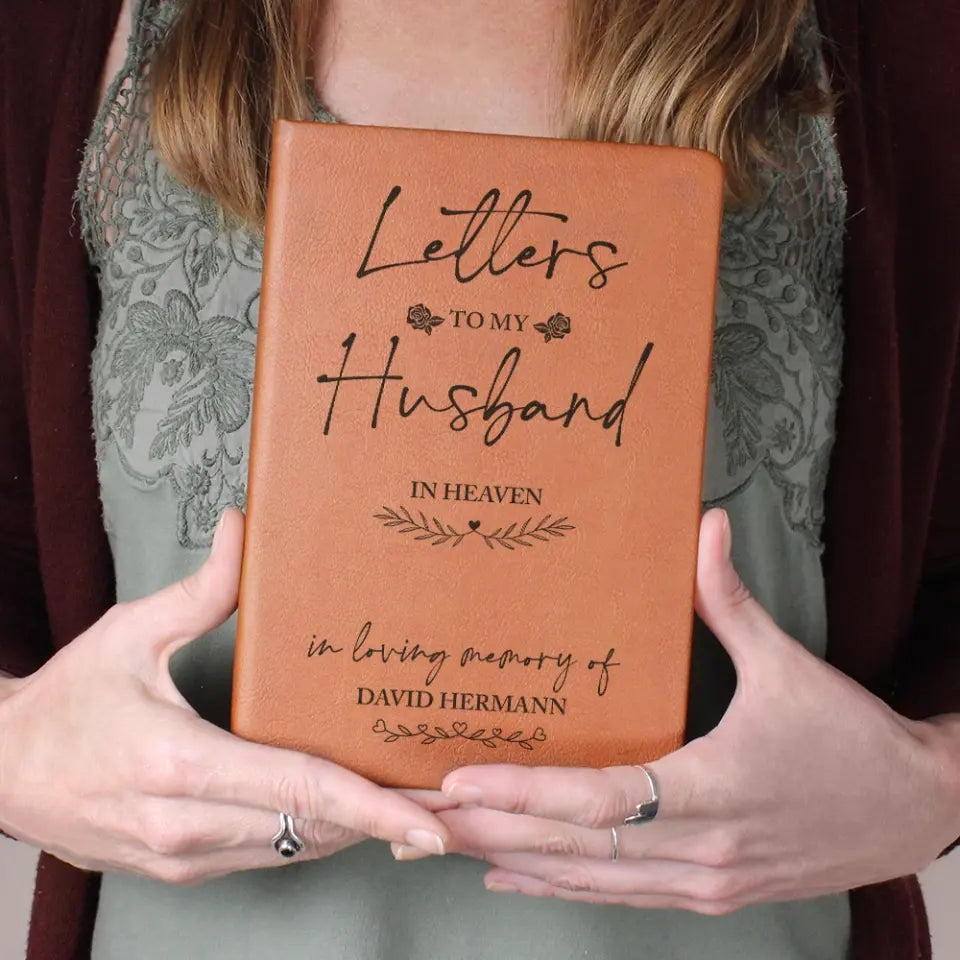 Letters
TO MY
Husband
IN HEAVEN
in loving memory of
DAVID HERMANN